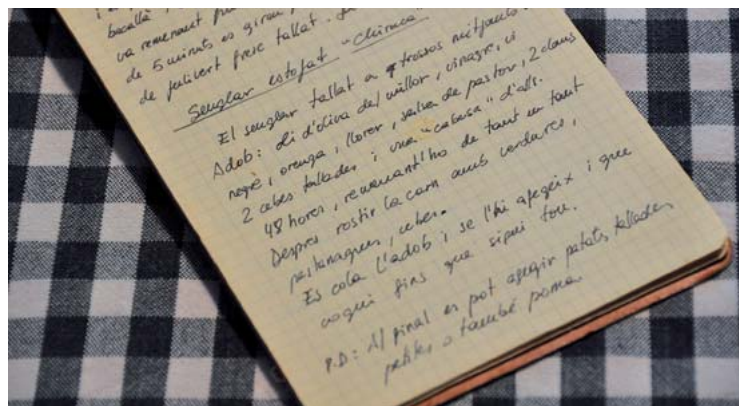 bacallà,
va remenant
de 5 minuts es giren
de julivert fresc tallat.
Senglar estofat "Chimca"
El senglar tallat a trossos mitjans.
Adob: oli d'oliva del millor, vinagre, vi
negre, orenga, llorer, salsa de pastor, 2 claus
2 cebes tallades i una "cabesa" d'alls.
48 hores, remenant'ho de tant en tant
Despres rostir la carn amb verdures,
pastanagues, cebes.
Es cola l'adob i se l'hi afegeix i que
cogui fins que sigui tou.
P.D: Al final es pot afegir patates tallades
petites o també poma.